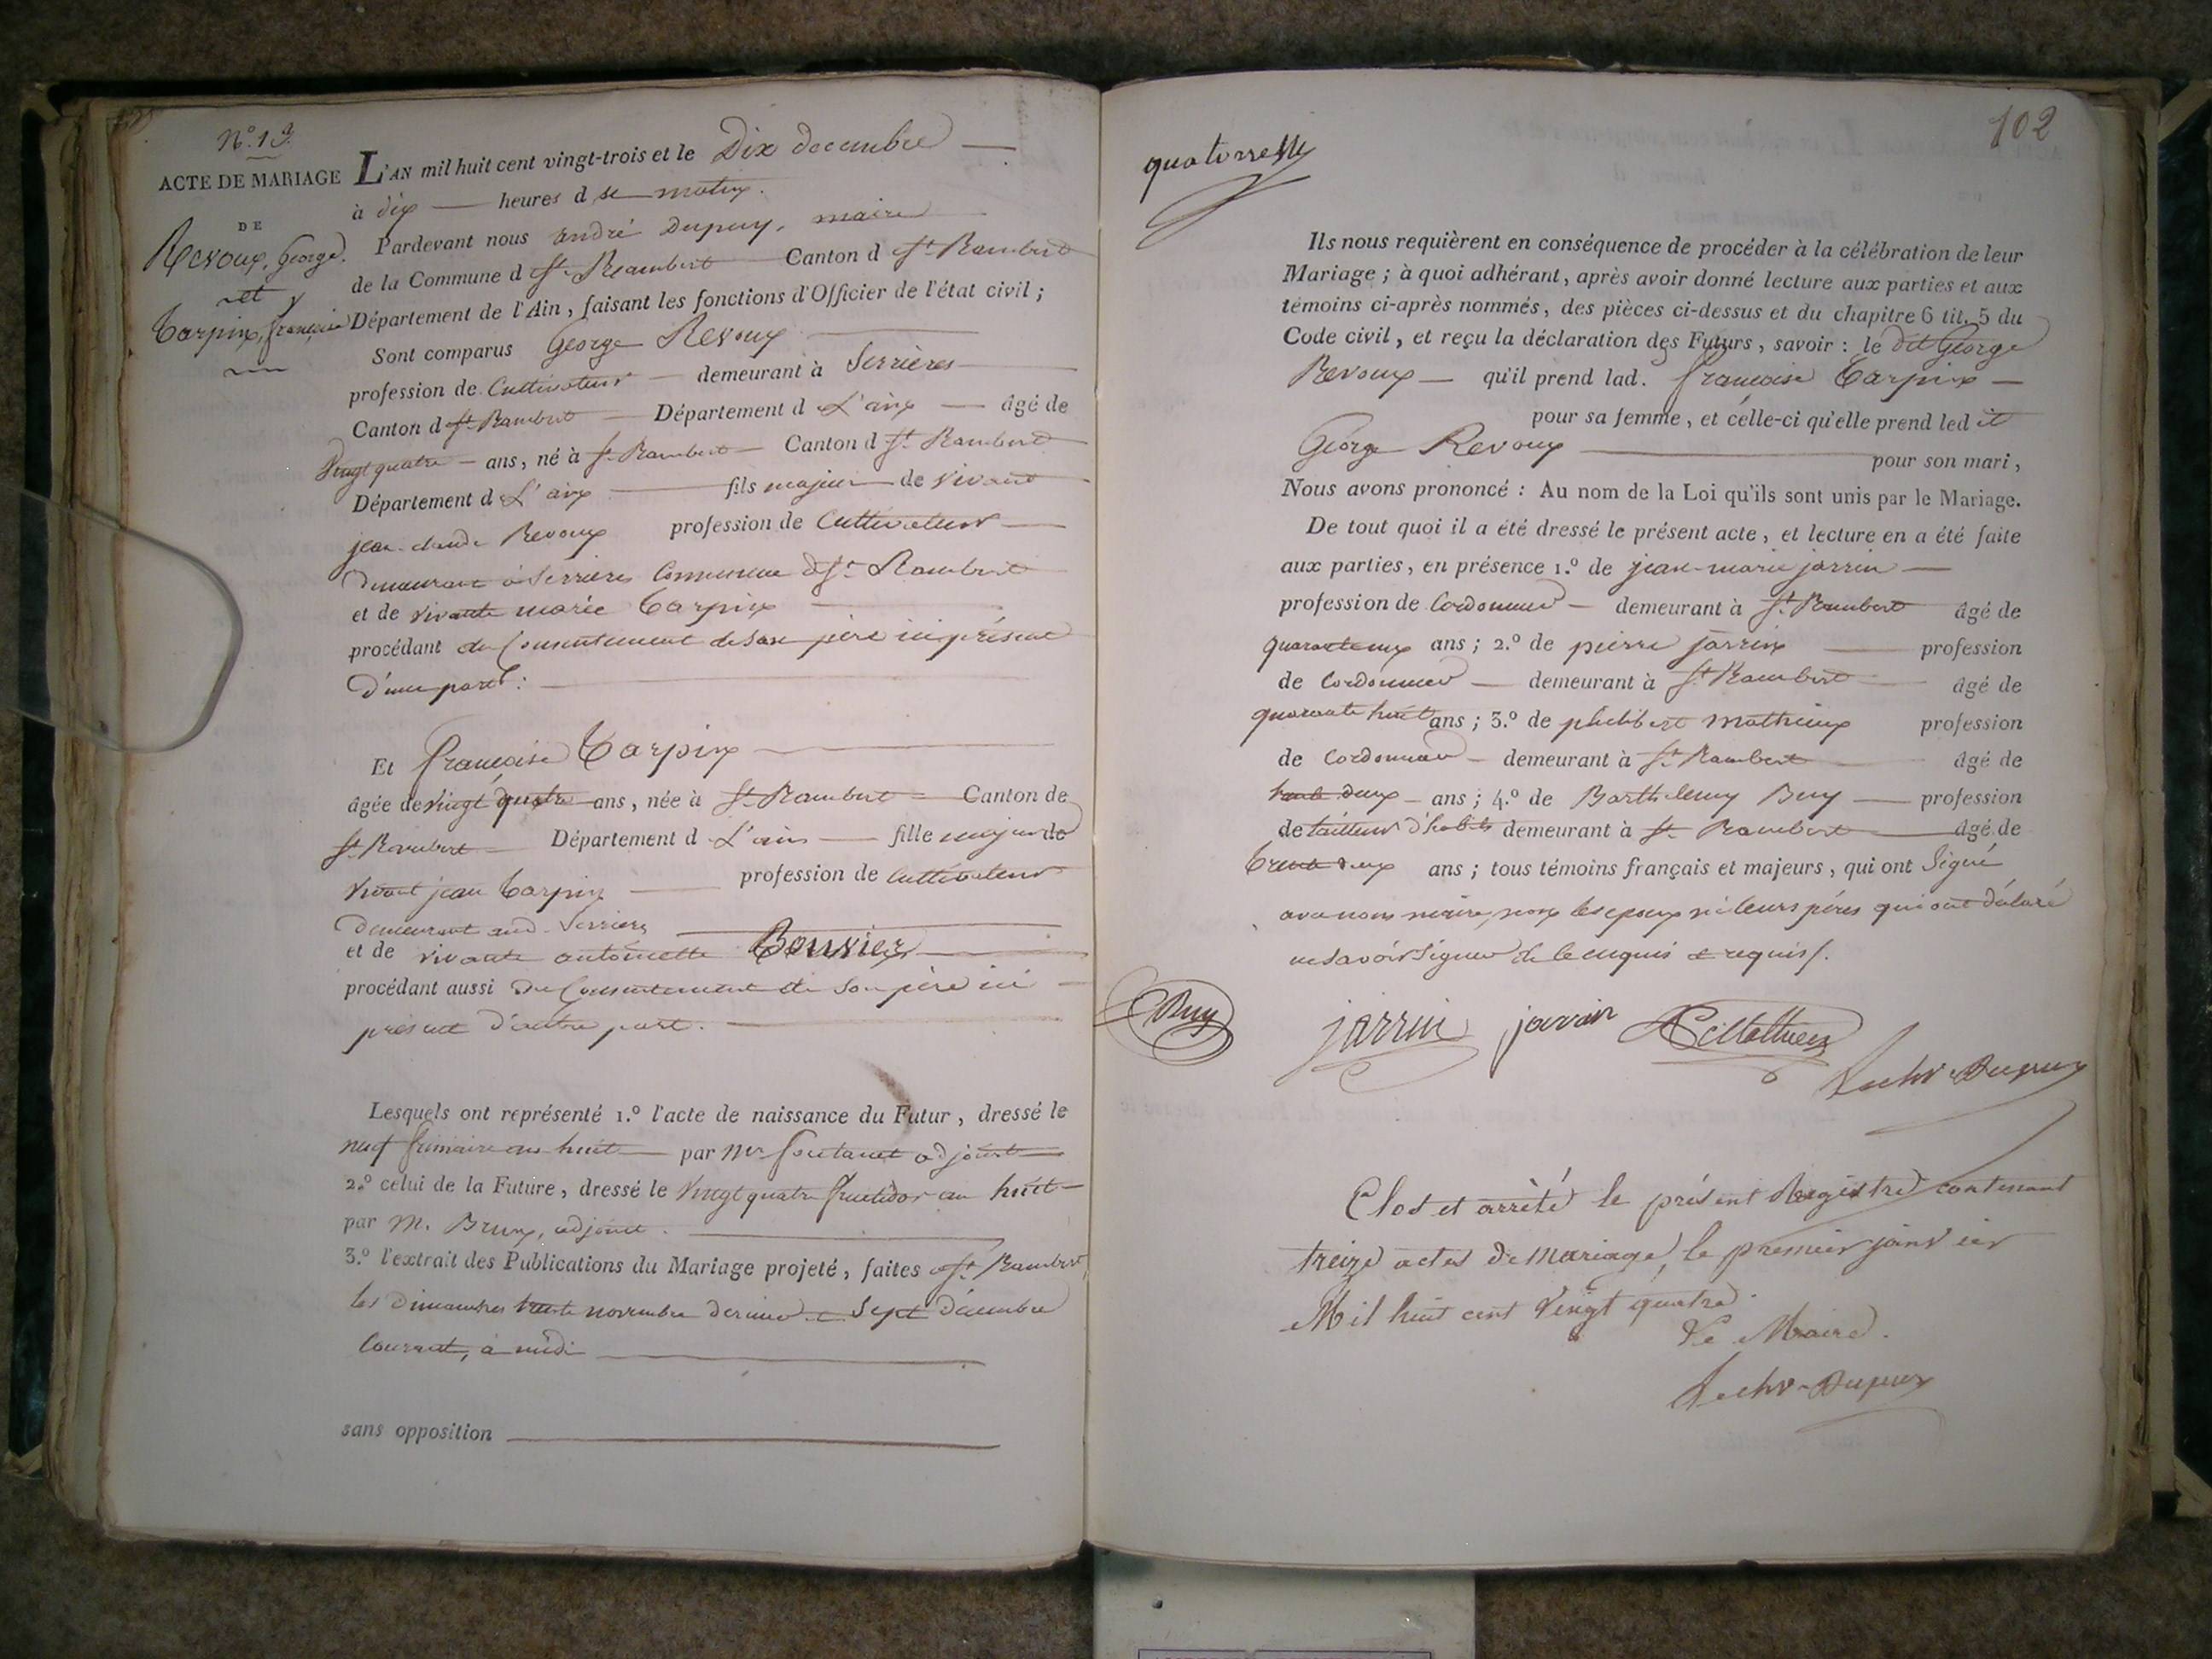 N.º 13.
ACTE DE MARIAGE
DE
Revoux, George.
et
Tarpin, françoise
L'AN mil huit cent vingt-trois et le Dix decembre
à dix heures d u matin.
Pardevant nous andré Dupuy, maire
de la Commune d St. Rambert Canton d St. Rambert
Département de l'Ain, faisant les fonctions d'Officier de l'état civil ;
Sont comparus George Revoux
profession de Cultivateur demeurant à Serrières
Canton d St. Rambert Département d L'ain âgé de
Vingt quatre ans, né à St. Rambert Canton d St. Rambert
Département d L'ain fils majeur de vivant
jean-claude Revoux profession de Cultivateur
Demeurant à Serrières Commune d St. Rambert
et de vivante marie Tarpin
procédant du Consentement de son père ici présent
d'une part :
Et françoise Tarpin
âgée de vingt quatre ans, née à St. Rambert Canton de
St. Rambert Département d L'ain fille majeur de
vivant jean Tarpin profession de Cultivateur
Demeurant aud. Serrières
et de vivante antoinette Bouvier
procédant aussi Du Consentement de son père ici
présent d'autre part.
Lesquels ont représenté 1.º l'acte de naissance du Futur, dressé le
neuf frimaire an huit par Mr. fontanet adjoint
2.º celui de la Future, dressé le Vingt quatre fructidor an huit
par M. Brun, adjoint.
3.º l'extrait des Publications du Mariage projeté, faites a St. Rambert
les dimanches trente novembre dernier et Sept décembre
Courrant, à midi
sans opposition
102
quatorze
Ils nous requièrent en conséquence de procéder à la célébration de leur
Mariage ; à quoi adhérant, après avoir donné lecture aux parties et aux
témoins ci-après nommés, des pièces ci-dessus et du chapitre 6 tit. 5 du
Code civil, et reçu la déclaration des Futurs, savoir : le dit George
Revoux qu'il prend lad. françoise Tarpin
pour sa femme, et celle-ci qu'elle prend led it
George Revoux pour son mari,
Nous avons prononcé : Au nom de la Loi qu'ils sont unis par le Mariage.
De tout quoi il a été dressé le présent acte, et lecture en a été faite
aux parties, en présence 1.º de jean-marie jarrin
profession de Cordonnier demeurant à St. Rambert âgé de
ans ; 2.º de pierre jarrin profession
de Cordonnier demeurant à St. Rambert âgé de
quarante huit ans ; 3.º de philibert mathieux profession
de Cordonnier demeurant à St. Rambert âgé de
trente deux ans ; 4.º de Barthelemy Buy profession
de tailleur d'habits demeurant à St. Rambert âgé de
trente deux ans ; tous témoins français et majeurs, qui ont Signé
avec nous maire, non les epoux ni leurs pères qui ont déclaré
ne savoir signer de ce enquis et requis.
Buy
jarrin jarrin Mathieux
Dupuy
Clos et arrêté le présent Registre contenant
treize actes de Mariage, le premier janvier
Mil huit cent Vingt quatre.
Le Maire.
Dupuy